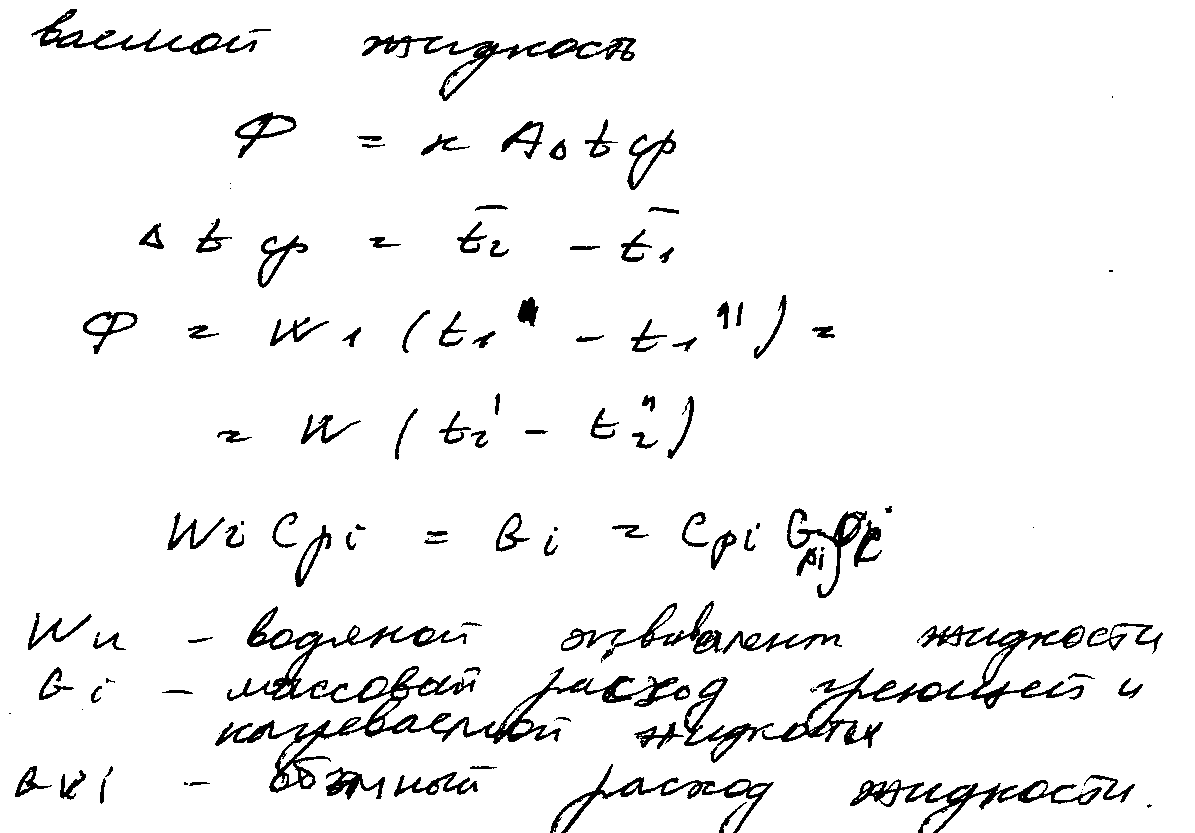 ваемой жидкость
Ф = к A Δ t ср
Δ t ср = t̄₂ - t̄₁
Ф = W₁ (t₁" - t₁") =
= W (t₂' - t₂")
Wi Cpi = Gi = Cpi G
Wи - водяной эквивалент жидкости
Gi - массовый расход греющей и
нагреваемой жидкости
Gvi - объэмный расход жидкости.